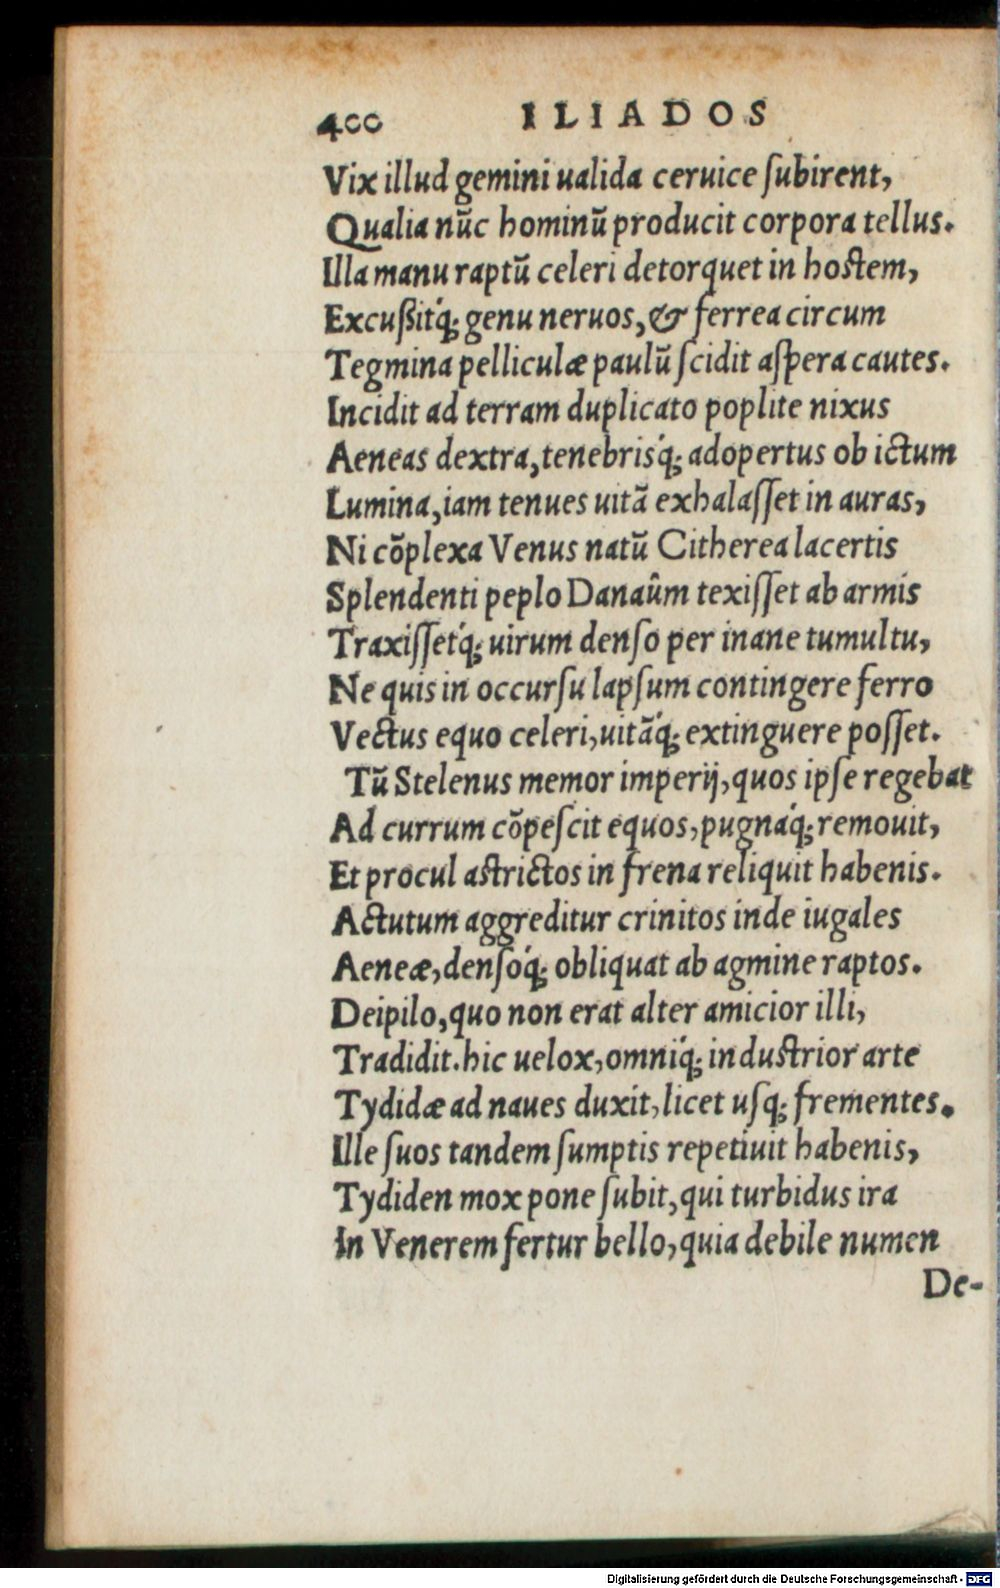 400 ILIADOS
Vix illud gemini ualida ceruice ſubirent,
Qualia nūc hominū producit corpora tellus.
Illa manu raptū celeri detorquet in hoſtem,
Excuſsitq́; genu neruos, & ferrea circum
Tegmina pelliculæ paulū ſcidit aſpera cautes.
Incidit ad terram duplicato poplite nixus
Aeneas dextra, tenebrisq́; adopertus ob ictum
Lumina, iam tenues uitā exhalaſſet in auras,
Ni cōplexa Venus natū Citherea lacertis
Splendenti peplo Danaûm texiſſet ab armis
Traxiſſetq́; uirum denſo per inane tumultu,
Ne quis in occurſu lapſum contingere ferro
Vectus equo celeri, uitāq́; extinguere poſſet.
Tū Stelenus memor imperij, quos ipſe regebat
Ad currum cōpeſcit equos, pugnáq́; remouit,
Et procul aſtrictos in frena reliquit habenis.
Actutum aggreditur crinitos inde iugales
Aeneæ, denſoq́; obliquat ab agmine raptos.
Deipilo, quo non erat alter amicior illi,
Tradidit. hic uelox, omniq́; induſtrior arte
Tydidæ ad naues duxit, licet uſq; frementes.
Ille ſuos tandem ſumptis repetiuit habenis,
Tydiden mox pone ſubit, qui turbidus ira
In Venerem fertur bello, quia debile numen
De-
Digitalisierung gefördert durch die Deutsche Forschungsgemeinschaft - DFG